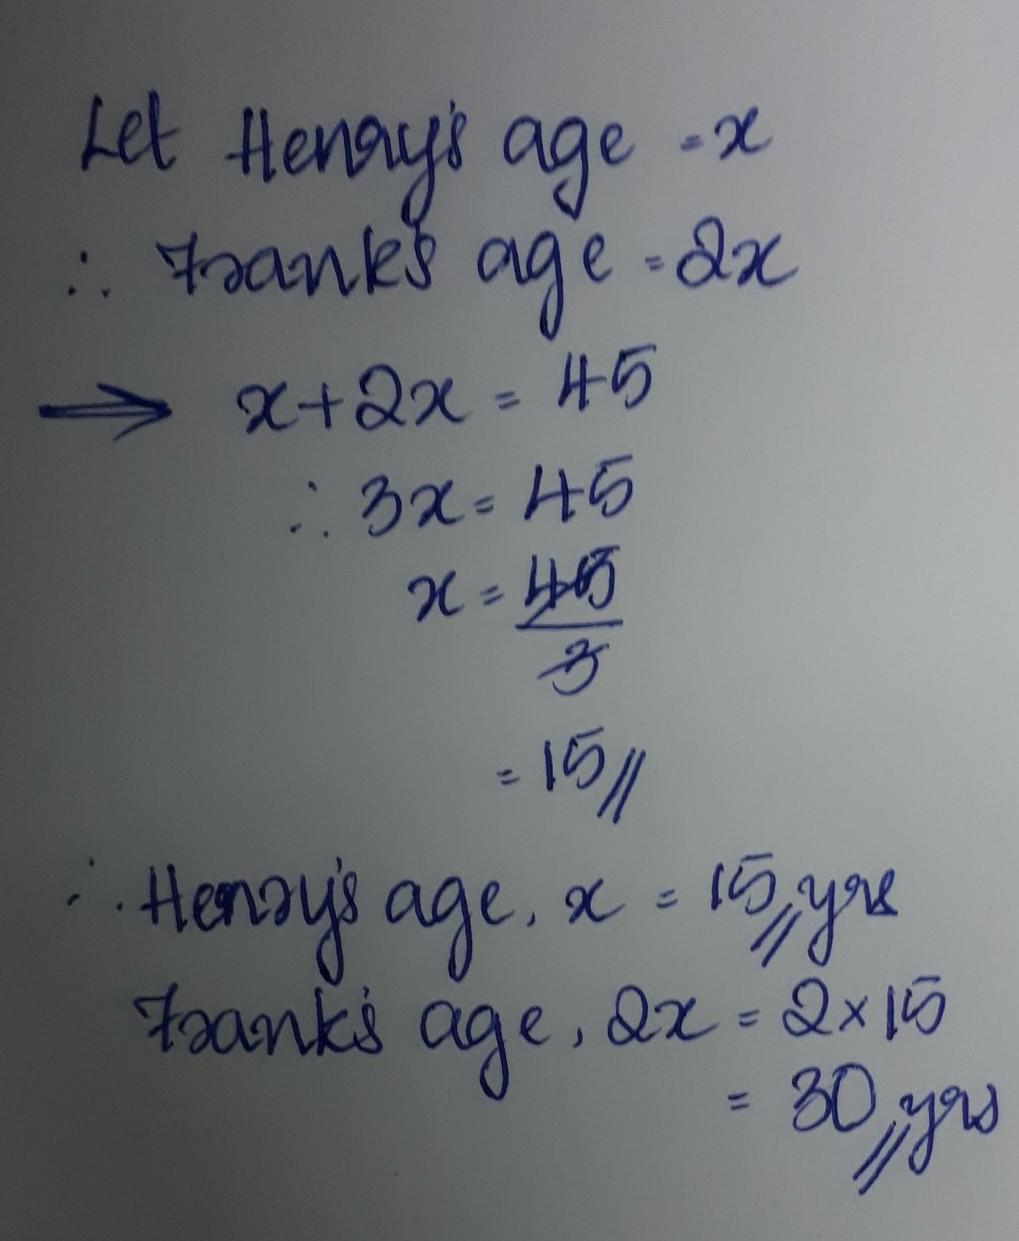 Let Henry's age = x
∴ Frank's age = 2x
⟹ x+2x = 45
∴ 3x = 45
x = 45
3
= 15//
∴ Henry's age, x = 15// yrs
Frank's age, 2x = 2×15
= 30// yrs